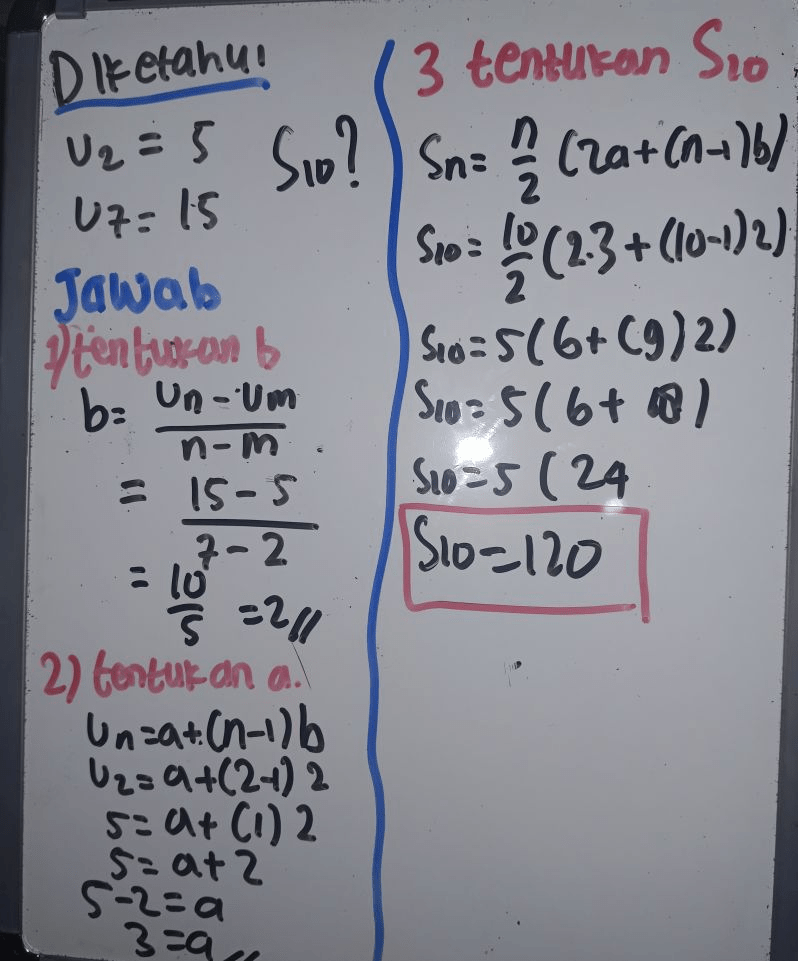 Diketahui
U2 = 5
S10?
U7 = 15
Jawab
1) tentukan b
b = Un - Um
n - m
= 15 - 5
7 - 2
= 10
5 = 2 //
2) tentukan a.
Un = a + (n-1) b
U2 = a + (2-1) 2
5 = a + (1) 2
5 = a + 2
5 - 2 = a
3 = a //
3 tentukan S10
Sn = n/2 (2a + (n-1) b)
S10 = 10/2 (2.3 + (10-1) 2)
S10 = 5 (6 + (9) 2)
S10 = 5 (6 + 18)
S10 = 5 (24
S10 = 120